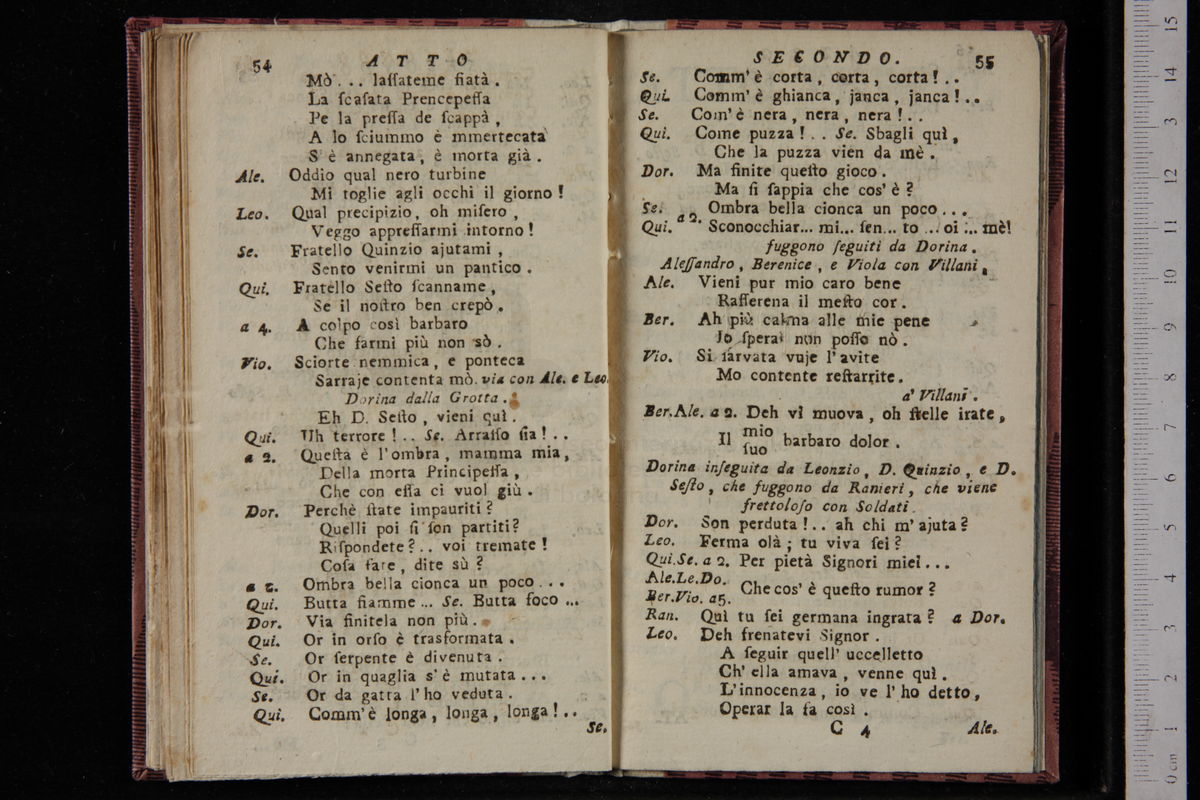 54 ATTO
Mò... laſſateme fiatà.
La ſcaſata Prencepeſſa
Pe la preſſa de ſcappà,
A lo ſciummo è mmertecata
S' è annegata, è morta già.
Ale. Oddio qual nero turbine
Mi toglie agli occhi il giorno!
Leo. Qual precipizio, oh miſero,
Veggo appreſſarmi intorno!
Se. Fratello Quinzio ajutami,
Sento venirmi un pantico.
Qui. Fratello Seſto ſcanname,
Se il noſtro ben crepò.
a 4. A colpo così barbaro
Che farmi più non sò.
Vio. Sciorte nemmica, e ponteca
Sarraje contenta mò. via con Ale. e Leo.
Dorina dalla Grotta.
Eh D. Seſto, vieni quì.
Qui. Uh terrore!.. Se. Arraſſo ſia!..
a 2. Queſta è l'ombra, mamma mia,
Della morta Principeſſa,
Che con eſſa ci vuol giù.
Dor. Perchè ſtate impauriti?
Quelli poi ſi ſon partiti?
Riſpondete?.. voi tremate!
Coſa fate, dite sù?
a 2. Ombra bella cionca un poco...
Qui. Butta fiamme... Se. Butta foco...
Dor. Via finitela non più.
Qui. Or in orſo è trasformata.
Se. Or ſerpente è divenuta.
Qui. Or in quaglia s'è mutata...
Se. Or da gatta l'ho veduta.
Qui. Comm'è longa, longa, longa!..
Se.
SECONDO. 55
Se. Comm'è corta, corta, corta!..
Qui. Comm'è ghianca, janca, janca!..
Se. Com'è nera, nera, nera!..
Qui. Come puzza!.. Se. Sbagli quì,
Che la puzza vien da mè.
Dor. Ma finite queſto gioco.
Ma ſi ſappia che cos'è?
Se. Ombra bella cionca un poco...
Qui. a 2. Sconocchiar... mi... ſen... to... oi... mè!
fuggono ſeguiti da Dorina.
Aleſſandro, Berenice, e Viola con Villani.
Ale. Vieni pur mio caro bene
Raſſerena il meſto cor.
Ber. Ah più calma alle mie pene
Io ſperar non poſſo nò.
Vio. Si ſarvata vuje l'avite
Mo contente reſtarrite.
a' Villani.
Ber.Ale. a 2. Deh vi muova, oh ſtelle irate,
Il mio ſuo barbaro dolor.
Dorina inſeguita da Leonzio, D. Quinzio, e D.
Seſto, che fuggono da Ranieri, che viene
frettoloſo con Soldati.
Dor. Son perduta!.. ah chi m'ajuta?
Leo. Ferma olà; tu viva ſei?
Qui.Se. a 2. Per pietà Signori miei...
Ale.Le.Do.
Ber.Vio. a5. Che cos'è queſto rumor?
Ran. Quì tu ſei germana ingrata? a Dor.
Leo. Deh frenatevi Signor.
A ſeguir quell' uccelletto
Ch' ella amava, venne quì.
L'innocenza, io ve l'ho detto,
Operar la fa così.
C 4 Ale.